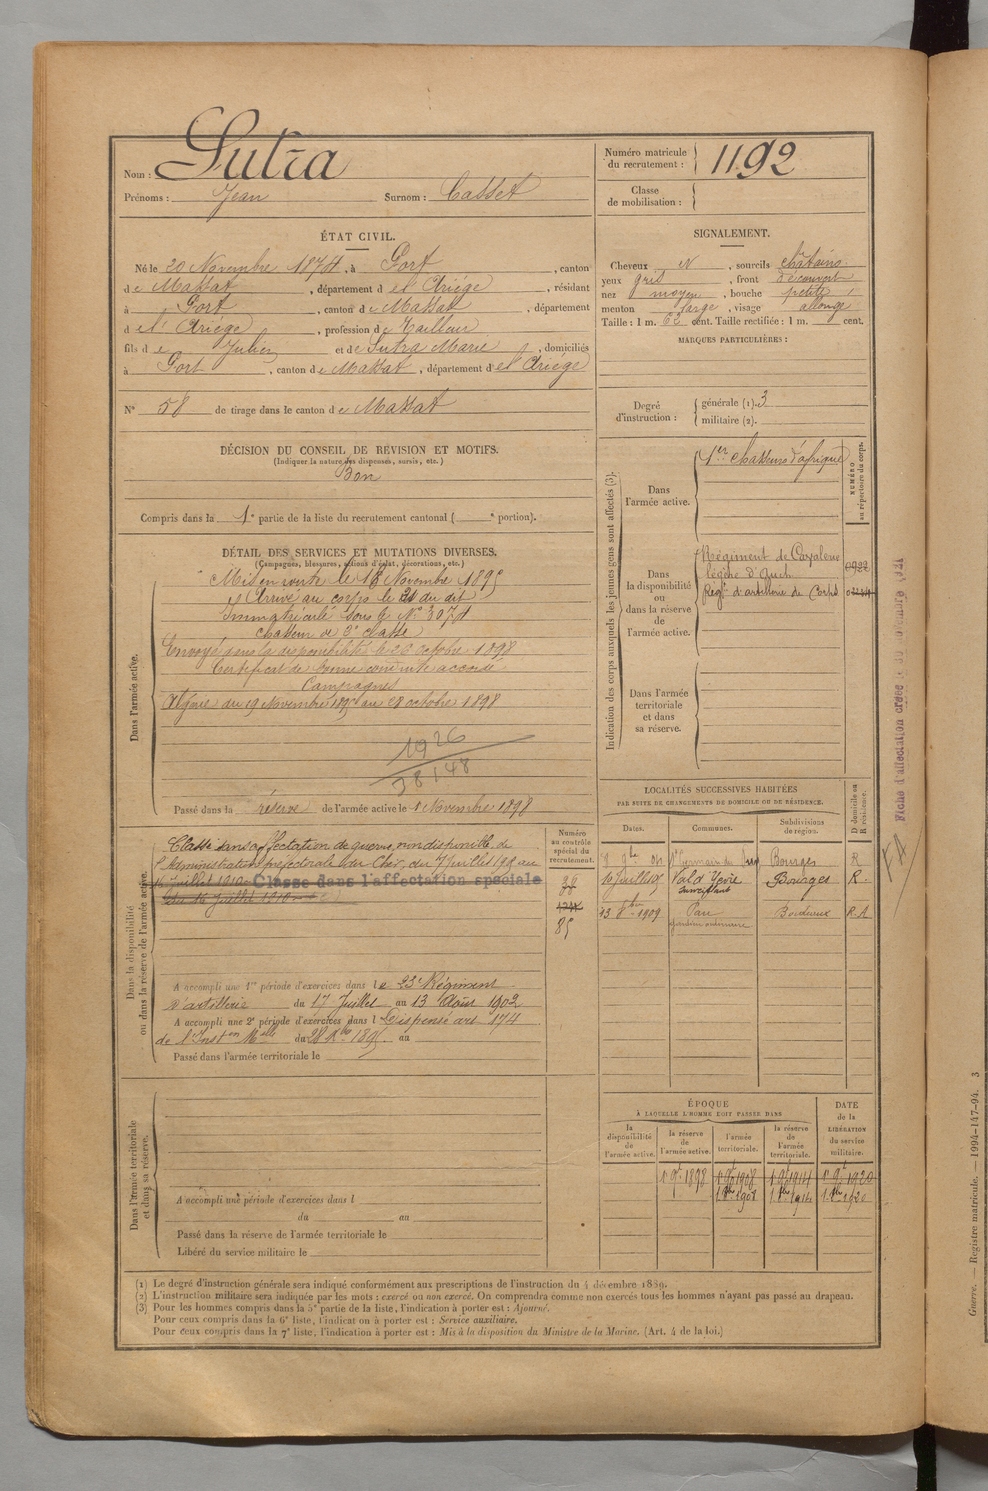 Nom : Sutra
Prénoms : Jean Surnom : Casset
Numéro matricule du recrutement : 1192
Classe de mobilisation :
ÉTAT CIVIL.
Né le 20 Novembre 1874, à Port, canton
de Massat, département de l'Ariège, résidant
à Port, canton de Massat, département
de l'Ariège, profession de Tailleur
fils de Julien et de Sutra Marie, domiciliés
à Port, canton de Massat, département de l'Ariège
N° 58 de tirage dans le canton de Massat
SIGNALEMENT.
Cheveux N, sourcils châtains
yeux gris, front découvert
nez moyen, bouche petite
menton large, visage allongé
Taille : 1 m. 62 cent. Taille rectifiée : 1 m. cent.
MARQUES PARTICULIÈRES :
Degré d'instruction : générale (1). 3
militaire (2).
DÉCISION DU CONSEIL DE REVISION ET MOTIFS.
(Indiquer la nature des dispenses, sursis, etc.)
Bon
Compris dans la 1e partie de la liste du recrutement cantonal ( e portion).
DÉTAIL DES SERVICES ET MUTATIONS DIVERSES.
(Campagnes, blessures, actions d'éclat, décorations, etc.)
Dans l'armée active.
Mis en route le 16 Novembre 1895
Arrivé au corps le 21 du dit
Immatriculé sous le N° 3074
chasseur de 2e classe
Envoyé dans la disponibilité le 28 octobre 1898
Certificat de bonne conduite accordé
Campagnes
Algérie du 19 Novembre 1895 au 28 octobre 1898
1926
38148
Passé dans la réserve de l'armée active le 1 Novembre 1898
Indication des corps auxquels les jeunes gens sont affectés (3).
NUMÉRO au répertoire du corps.
Dans l'armée active.
1er Chasseurs d'afrique
Dans la disponibilité ou dans la réserve de l'armée active.
Régiment de Cavalerie
légère d'Auch
Régt d'artillerie de Corps
Dans l'armée territoriale et dans sa réserve.
Fiche d'affectation créée le 30 novembre 1921
FA
Dans la disponibilité ou dans la réserve de l'armée active.
Numéro au contrôle spécial du recrutement.
Classé dans affectation de guerre, non disponible de
l'Administration préfectorale du Cher, du 7 juillet 190 au
16 juillet 1910 Classé dans l'affectation spéciale
du 16 juillet 1910
38
85
A accompli une 1re période d'exercices dans le 23e Régiment
d'artillerie du 17 Juillet au 13 Août 1902
A accompli une 2e période d'exercices dans l Dispensé art. 174
de l'Inston Melle du 28 Xbre 1895 au
Passé dans l'armée territoriale le
LOCALITÉS SUCCESSIVES HABITÉES
PAR SUITE DE CHANGEMENTS DE DOMICILE OU DE RÉSIDENCE.
Dates. Communes. Subdivisions de région. D domicile ou R résidence.
St Germain du Puy Bourges R
Val d'Yèvre Bourges R.
surveillant
13 8bre 1909 Pau Bordeaux R.A
gardien ordinaire
ÉPOQUE
À LAQUELLE L'HOMME DOIT PASSER DANS
DATE de la LIBÉRATION du service militaire.
la disponibilité de l'armée active. la réserve de l'armée active. l'armée territoriale. la réserve de l'armée territoriale.
1 9bre 1898 1 9bre 1908 1 9bre 1914 1 9bre 1920
1 8bre 1908 1 8bre 1914 1 8bre 1920
Dans l'armée territoriale et dans sa réserve.
A accompli une période d'exercices dans l
du au
Passé dans la réserve de l'armée territoriale le
Libéré du service militaire le
(1) Le degré d'instruction générale sera indiqué conformément aux prescriptions de l'instruction du 4 décembre 1889.
(2) L'instruction militaire sera indiquée par les mots : exercé ou non exercé. On comprendra comme non exercés tous les hommes n'ayant pas passé au drapeau.
(3) Pour les hommes compris dans la 5e partie de la liste, l'indication à porter est : Ajourné.
Pour ceux compris dans la 6e liste, l'indication à porter est : Service auxiliaire.
Pour ceux compris dans la 7e liste, l'indication à porter est : Mis à la disposition du Ministre de la Marine. (Art. 4 de la loi.)
Guerre. — Registre matricule. — 1994-147-94. 3